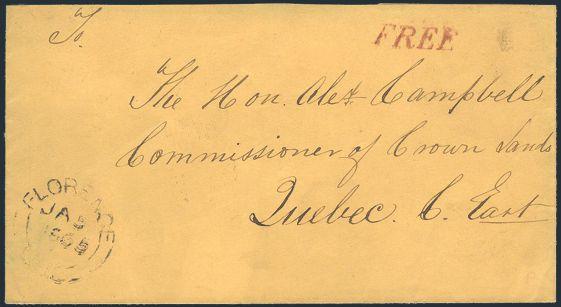 To.
FREE
The Hon. Alex Campbell
Commissioner of Crown Lands
Quebec. C. East
FLORENCE
JA